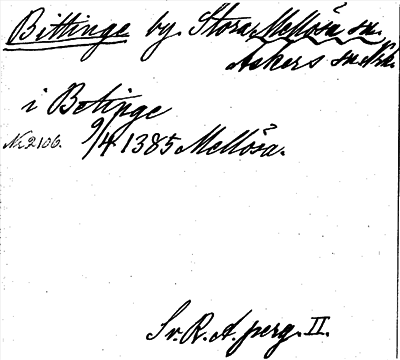 Bittinge by. Stora Mellösa sn.
Askers sn. Nke.
i Betipge
Nr. 2106. 9/4 1385 Mellösa.
Sv. R. A. perg. II.